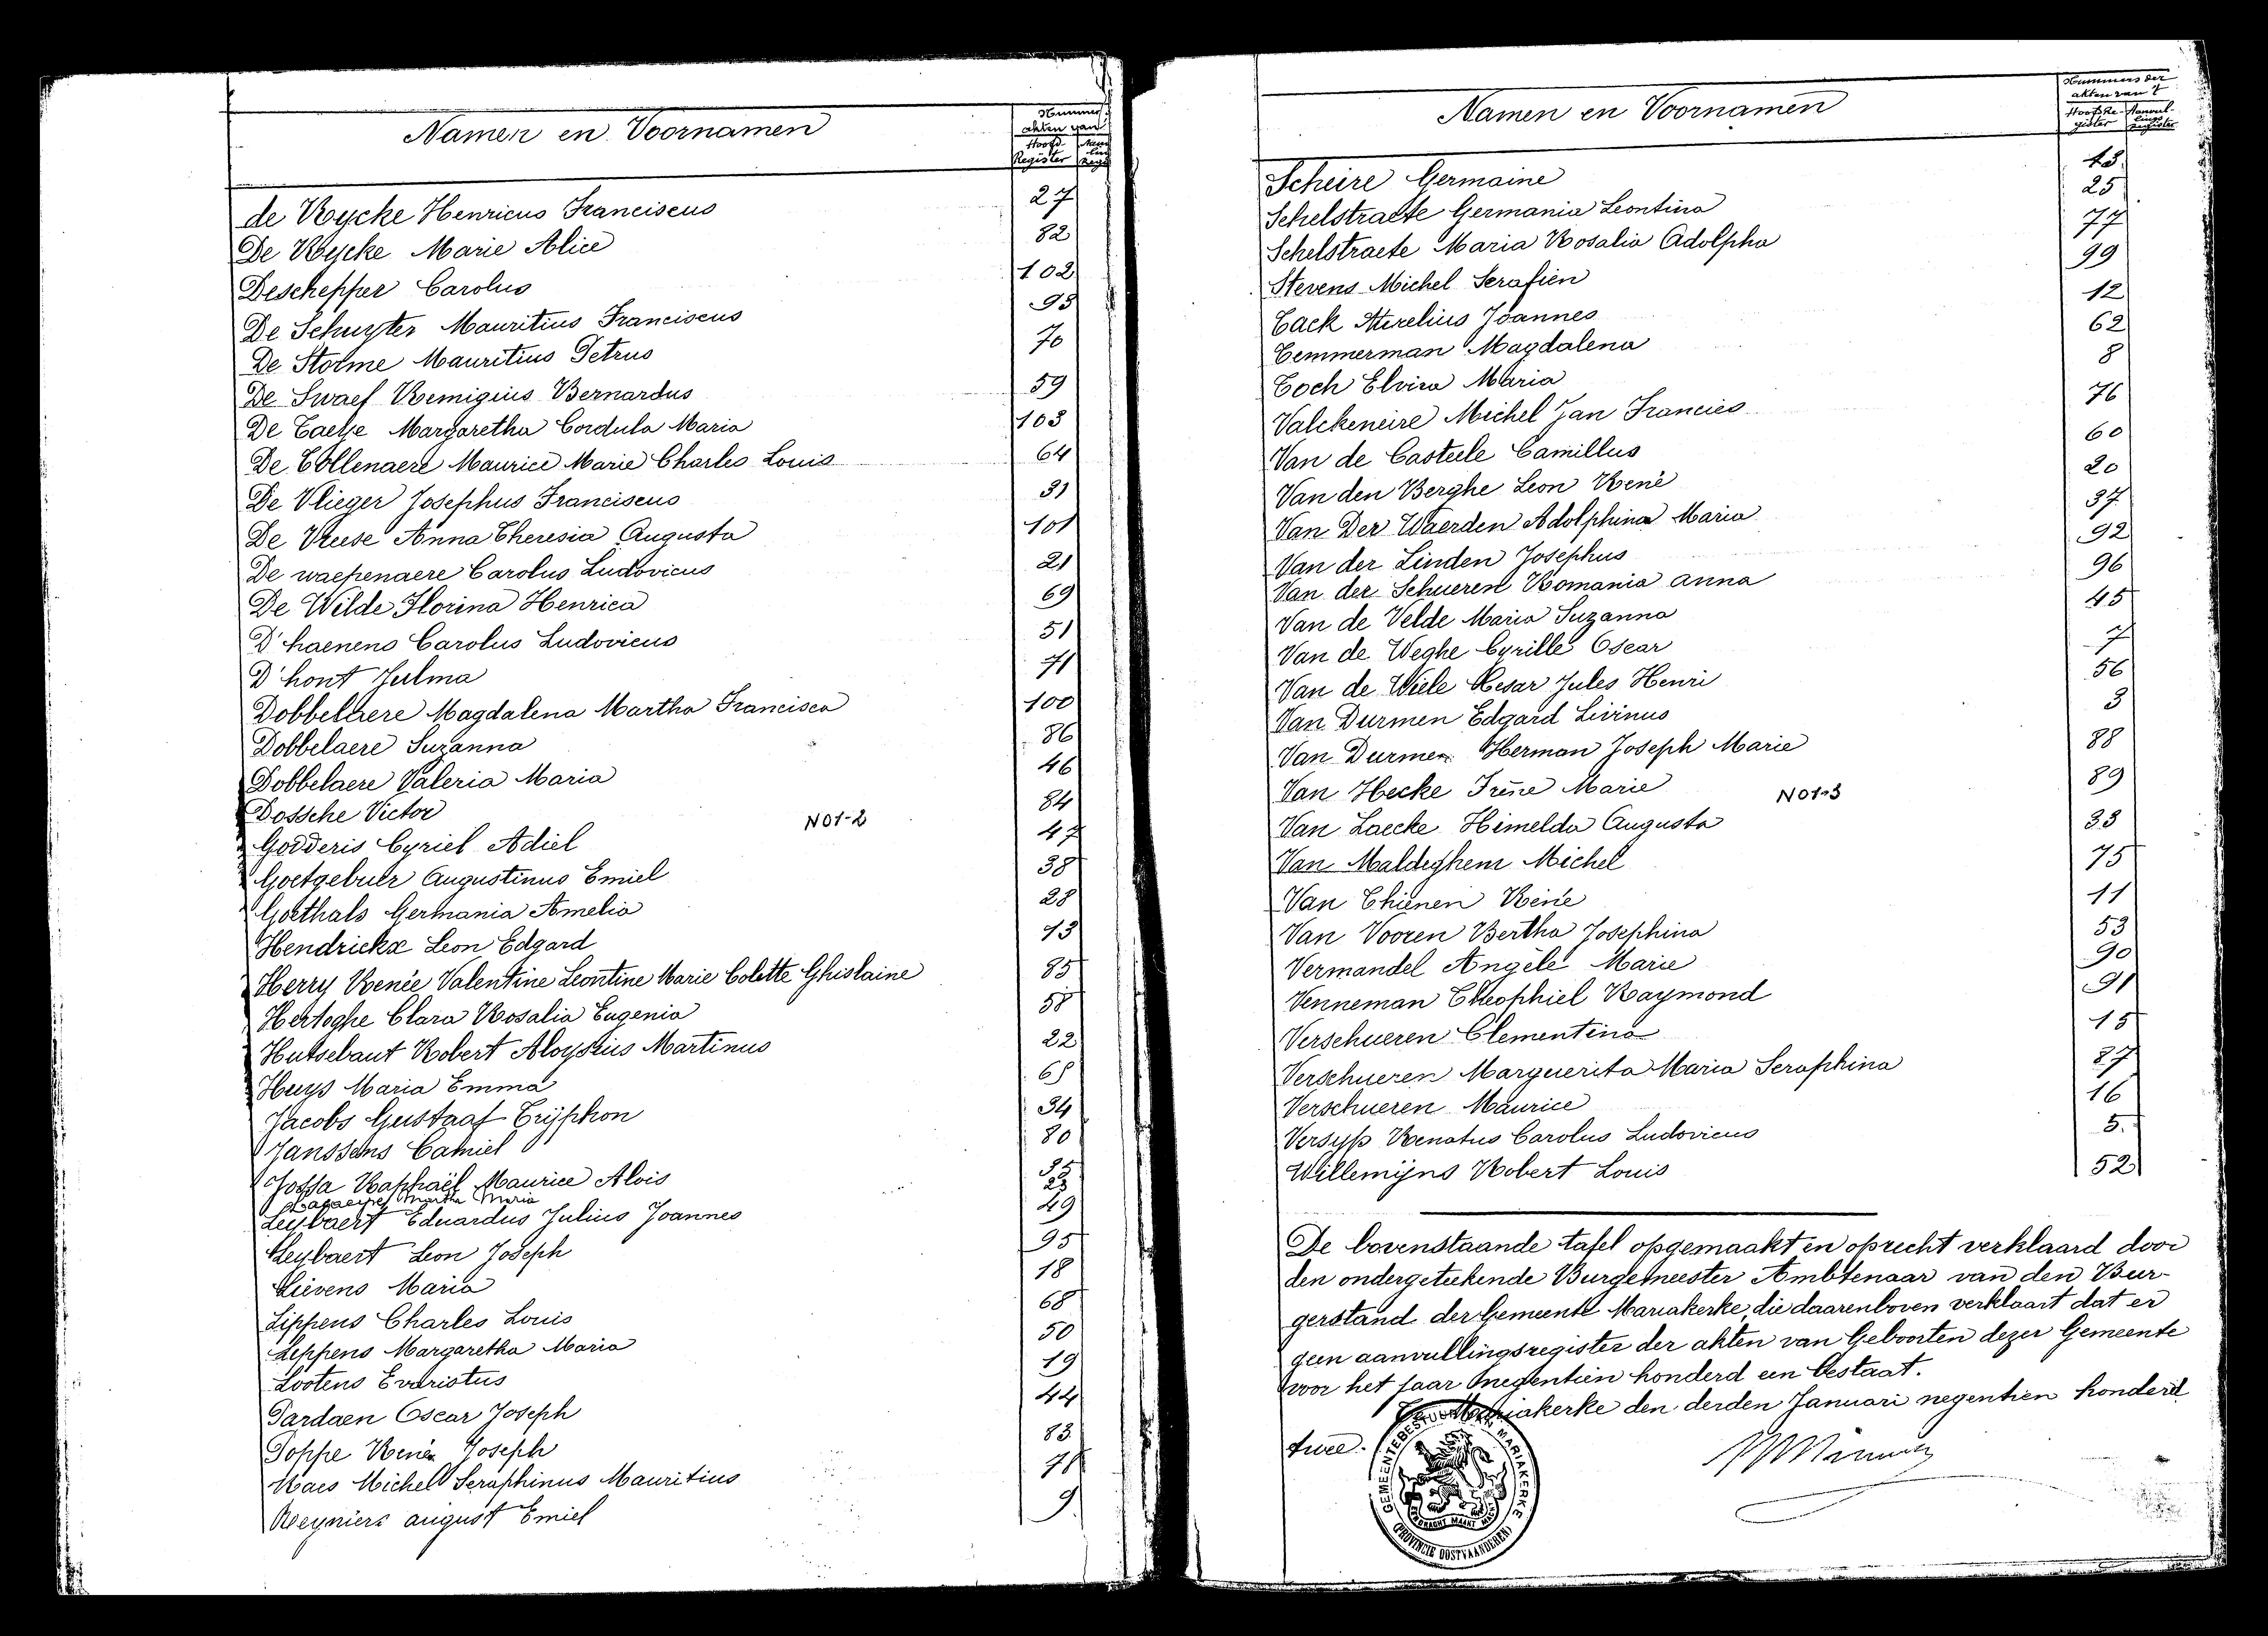 Namen en Voornamen
Nummers
akten van
Hoofd-
Register
de Rycke Henricus Franciscus 27
De Rycke Marie Alice 82
Deschepper Carolus 102
De Schuyter Mauritius Franciscus 93
De Stolme Mauritius Petrus 70
De Swaef Remigius Bernardus 59
De Taeye Margaretha Cordula Maria 103
De Tollenaere Maurice Marie Charles Louis 64
De Vlieger Josephus Franciscus 31
De Vreese Anna Theresia Augusta 101
De waepenaere Carolus Ludovicus 21
De Wilde Florina Henrica 69
D'haenens Carolus Ludovicus 51
D'hont Julma 71
Dobbelaere Magdalena Martha Francisca 100
Dobbelaere Suzanna 86
Dobbelaere Valeria Maria 46
Dossche Victor 84
N01-2
Godderis Cyriel Adiel 47
Goetgebuer Augustinus Emiel 38
Goethals Germania Amelia 28
Hendrickx Leon Edgard 13
Herry Renée Valentine Leontine Marie Colette Ghislaine 85
Hertoghe Clara Rosalia Eugenia 58
Hutsebaut Robert Aloysius Martinus 22
Huys Maria Emma
Jacobs Gustaaf Tryphon 34
Janssens Camiel 80
Jossa Raphaël Maurice Alois 35
Martha Maria 23
Leybaert Eduardus Julius Joannes 49
Leybaert Leon Joseph 95
Lievens Maria 18
Lippens Charles Louis 68
Lippens Margaretha Maria 50
Lootens Evaristus 19
Pardaen Oscar Joseph 44
Poppe René Joseph 83
Raes Michel Seraphinus Mauritius
Reyniers august Emiel 9
Namen en Voornamen
Nummers der
akten van 't
Hoofdre- Aanvul-
gister lings
register
Scheire Germaine
Schelstraete Germania Leontina 25
Schelstraete Maria Rosalia Adolpha 77
Stevens Michel Serafien 99
Tack Aurelius Joannes 12
Temmerman Magdalena 62
Toch Elvira Maria 8
Valckeneire Michel Jan Francies 76
Van de Casteele Camillus 60
Van den Berghe Leon René 20
Van Der Waerden Adolphina Maria 37
Van der Linden Josephus 92
Van der Schueren Romania anna 96
Van de Velde Maria Suzanna 45
Van de Weghe Cyrille Oscar 7
Van de Wiele Cesar Jules Henri 56
Van Durmen Edgard Livinus 3
Van Durmen Herman Joseph Marie 88
Van Hecke Irène Marie 89
N01-3
Van Laecke Himelda Augusta 33
Van Maldeghem Michel 75
Van Thienen René 11
Van Vooren Bertha Josephina 53
Vermandel Angèle Marie 90
Venneman Theophiel Raymond 91
Verschueren Clementina 15
Verschueren Marguerita Maria Seraphina
Verschueren Maurice 16
Versyp Renatus Carolus Ludovicus 5.
Willemijns Robert Louis 52
De bovenstaande tafel opgemaakt en oprecht verklaard door
den ondergeteekende Burgemeester Ambtenaar van den Bur-
gerstand der Gemeente Mariakerke, die daarenboven verklaart dat er
geen aanvullingsregister der akten van Geboorten dezer Gemeente
voor het jaar negentien honderd een bestaat.
Te Mariakerke den derden Januari negentien honderd
twee.
GEMEENTEBESTUUR VAN MARIAKERKE
EENDRACHT MAAKT MACHT
(PROVINCIE OOSTVAANDEREN)